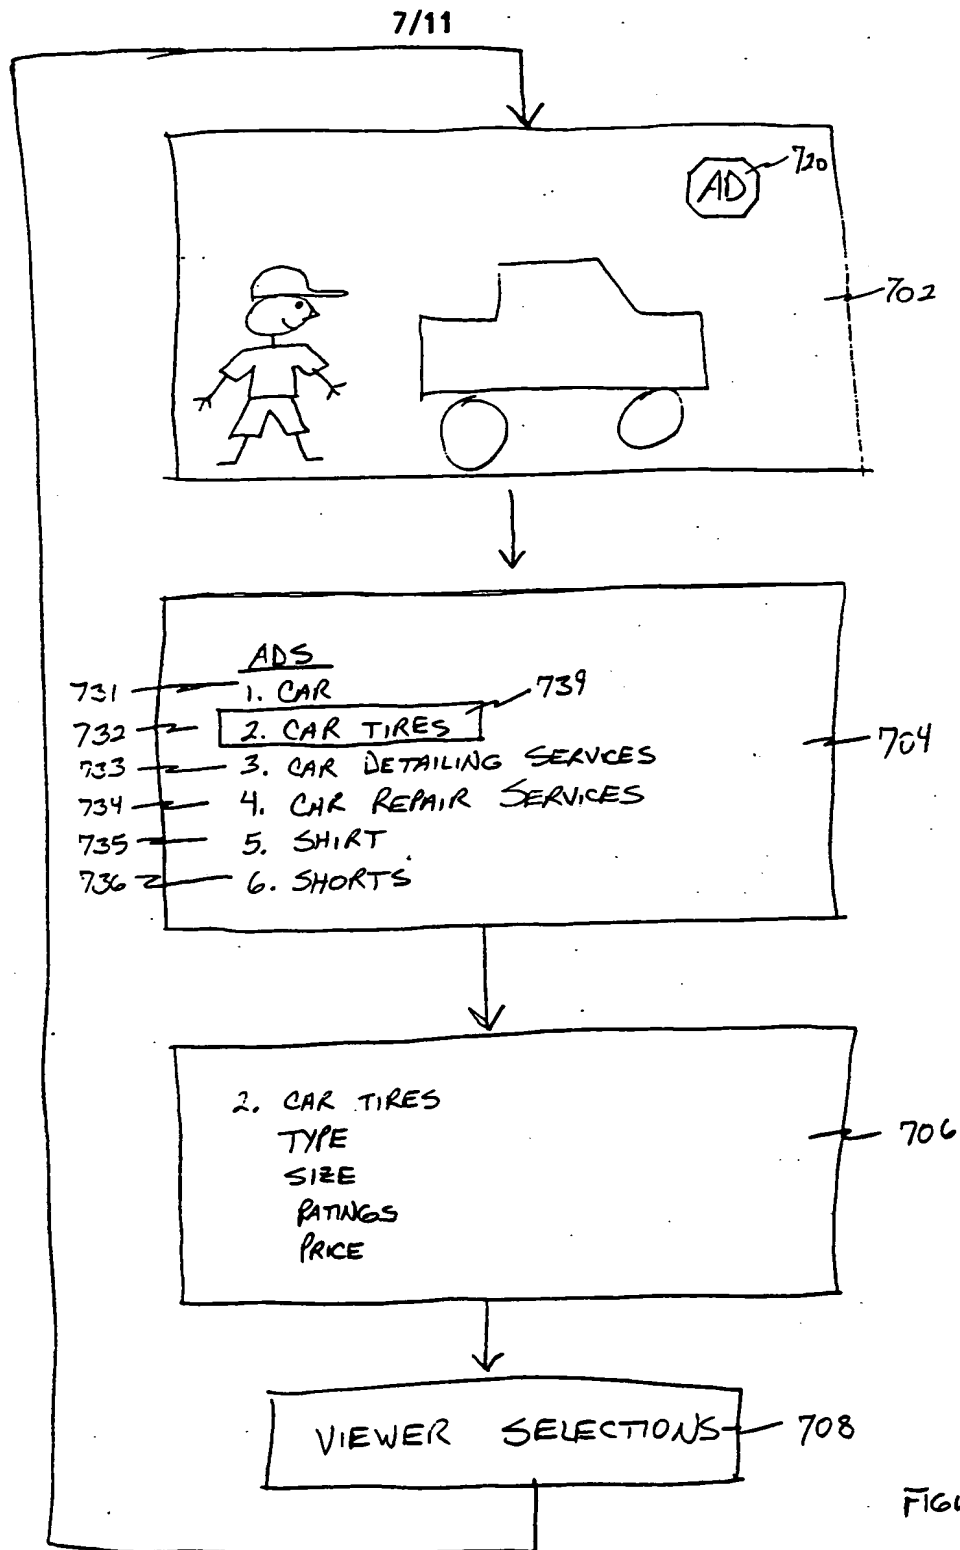 7/11
AD
720
702
ADS
731
1. CAR
739
732
2. CAR TIRES
704
733
3. CAR DETAILING SERVICES
734
4. CAR REPAIR SERVICES
735
5. SHIRT
736
6. SHORTS
2. CAR TIRES
706
TYPE
SIZE
RATINGS
PRICE
VIEWER SELECTIONS
708